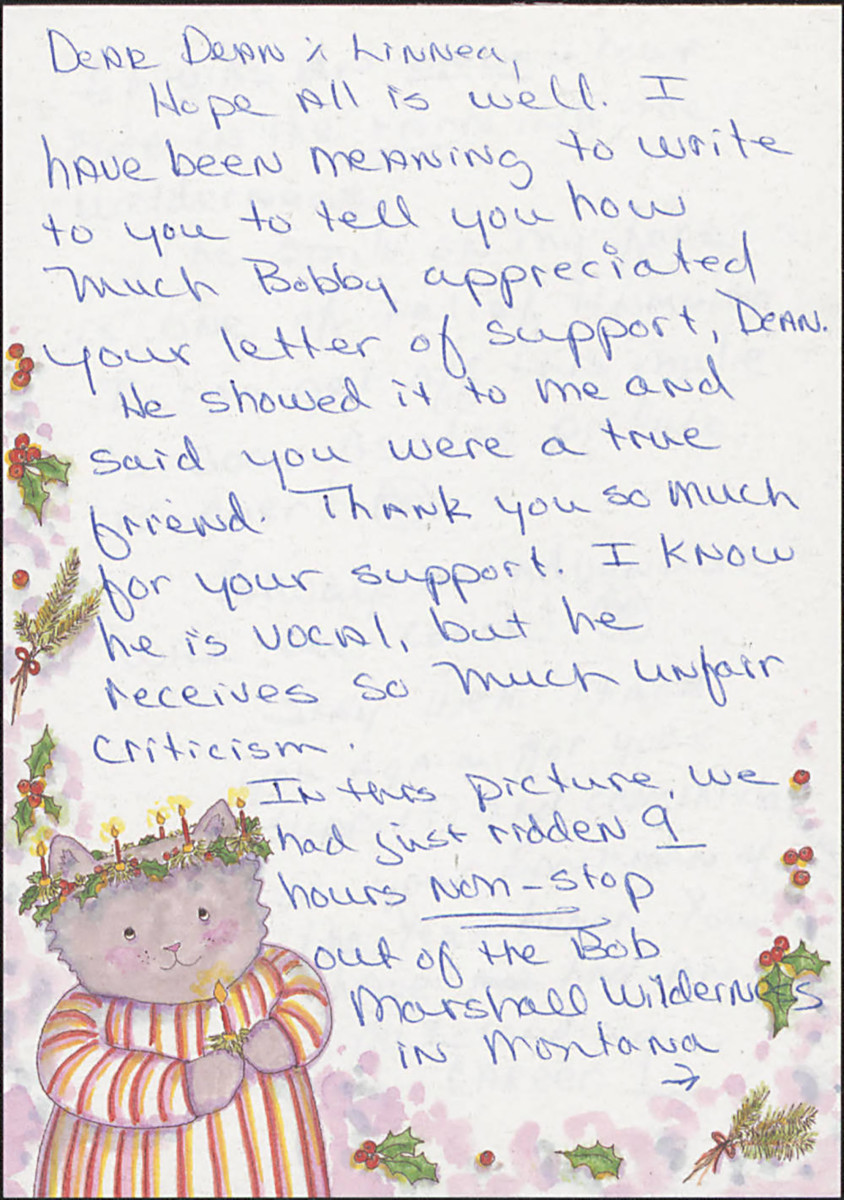 Dear Dean & Linnea,
Hope all is well. I
have been meaning to write
to you to tell you how
much Bobby appreciated
your letter of support, Dean.
He showed it to me and
said you were a true
friend. Thank you so much
for your support. I know
he is vocal, but he
receives so much unfair
criticism.
In this picture, we
had just ridden 9
hours non-stop
out of the Bob
Marshall Wilderness
in Montana
→